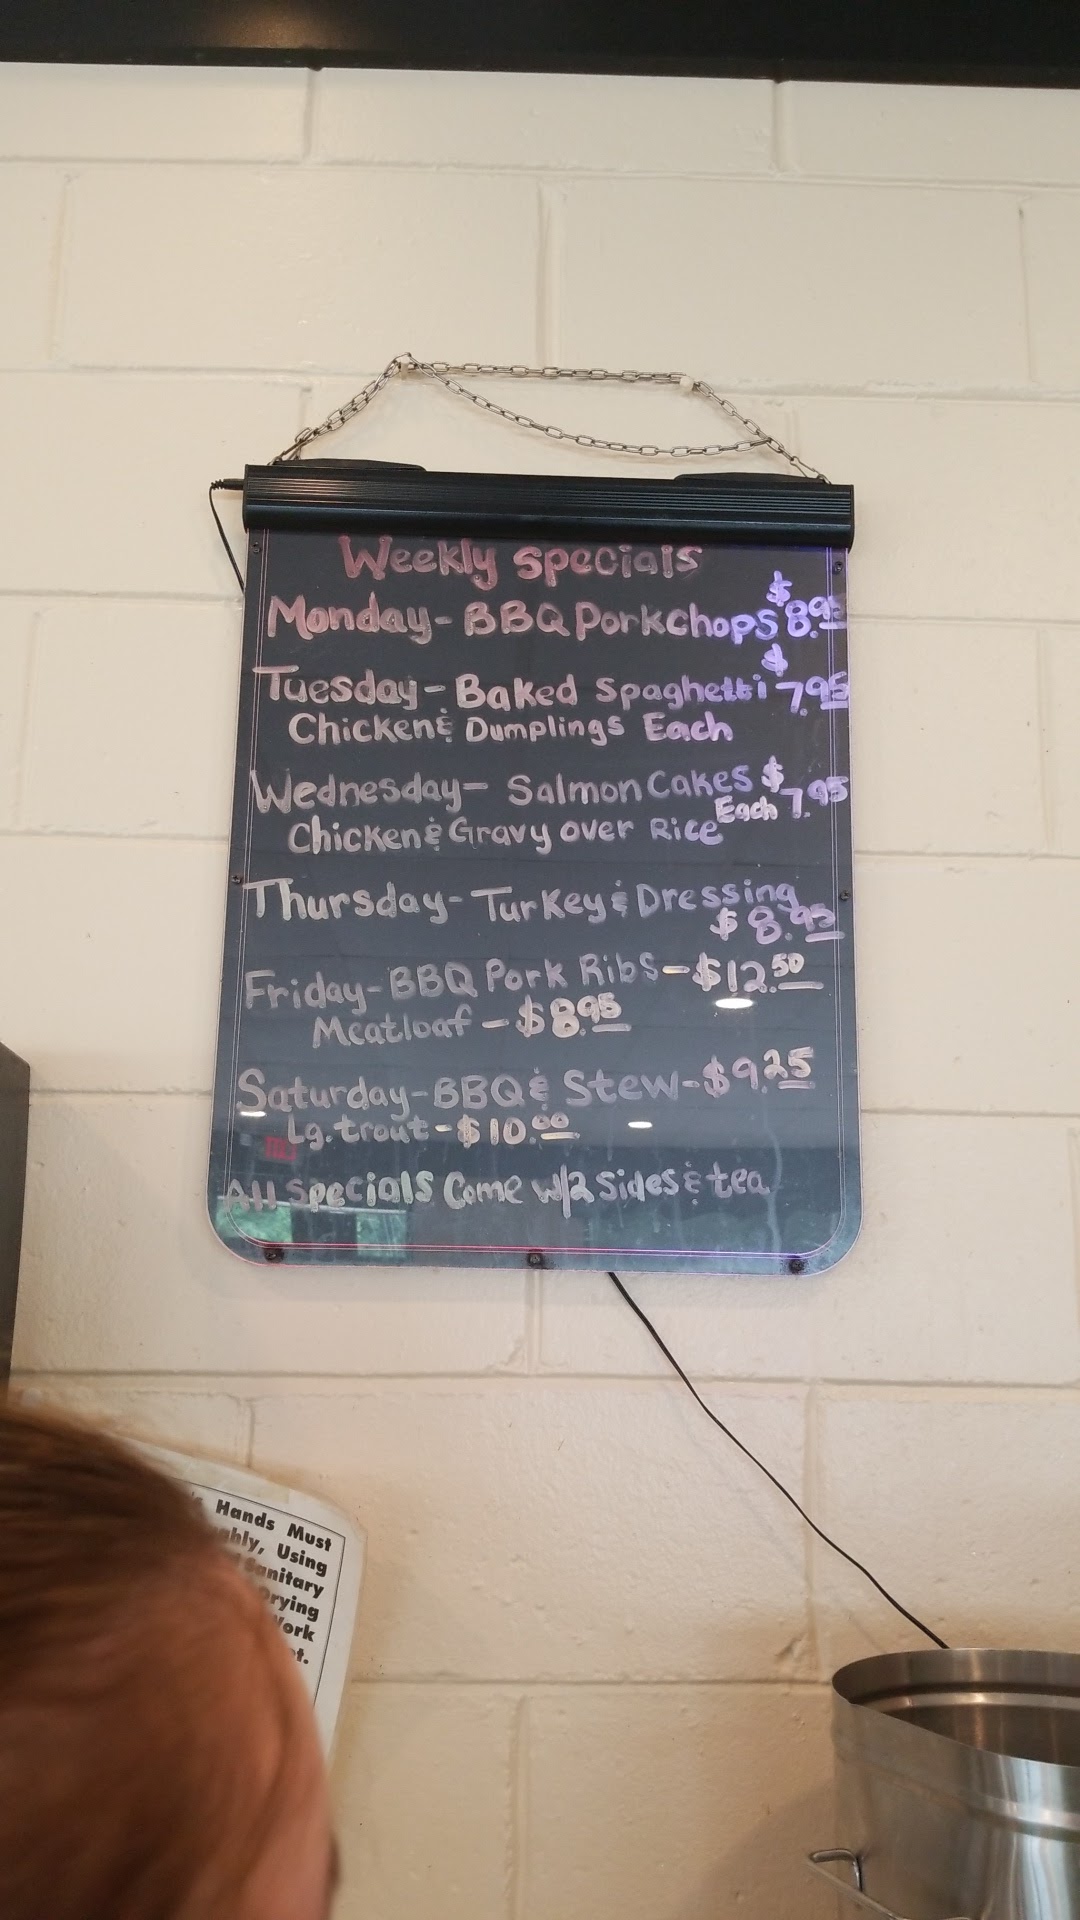 Weekly specials
Monday - BBQ Porkchops $8.95
Tuesday - Baked Spaghetti $7.95
Chicken & Dumplings Each
Wednesday - Salmon Cakes $7.95
Each
Chicken & Gravy over Rice
Thursday - Turkey & Dressing
$8.95
Friday - BBQ Pork Ribs - $12.50
Meatloaf - $8.95
Saturday - BBQ & Stew - $9.25
Lg. trout - $10.00
All specials Come w/2 sides & tea
Hands Must
Using
Sanitary
Drying
Work